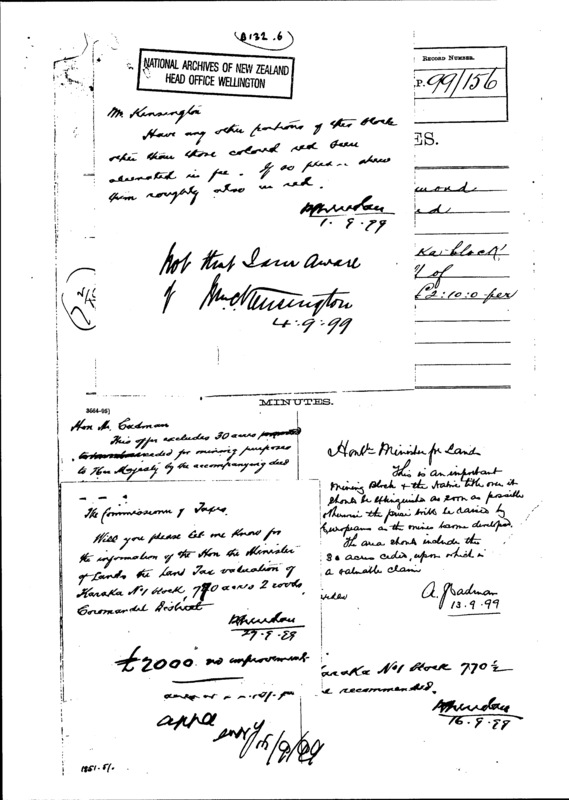 A132.6
NATIONAL ARCHIVES OF NEW ZEALAND
HEAD OFFICE WELLINGTON
RECORD NUMBER.
P. 99/156
Mr Kensington
Have any other portions of this block
other than those colored red been
alienated in fee. If so please show
them roughly also in red.
1.9.99
Not that I am aware
of Kensington
4.9.99
ES.
Ka block
of
£2:10:0 per
MINUTES.
3664-95)
Hon Mr Cadman
This offer excludes 30 acres
ceded for mining purposes
to Her Majesty by the accompanying deed
Honble Minister for Land
This is an important
mining Block & the Native title over it
should be extinguished as soon as possible
otherwise the price will be raised by
Europeans as the mines become developed.
The area should include the
30 acres ceded, upon which is
a valuable claim
A. J Cadman
13.9.99
The Commissioner of Taxes.
Will you please let me know for
the information of the Hon the Minister
of Lands the Land Tax valuation of
Karaka No 1 block, 770 acres 2 roods,
Coromandel District
27.9.99
£2000 no improvements
araka No 1 block 770 ½
e recommended.
16.9.99
1851.5/.